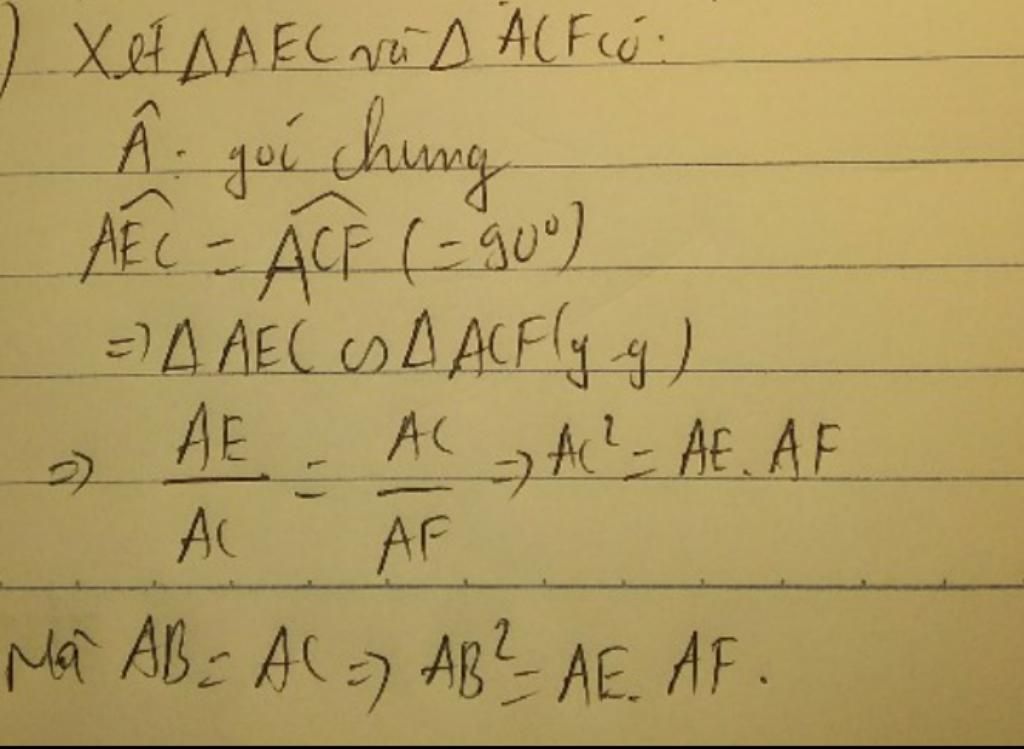 ) Xét ΔAEC và Δ ACF có:
Â: góc chung
AÊC = AĈF (=90°)
=> Δ AEC ∽ Δ ACF (g-g)
=> AE/AC = AC/AF => AC² = AE. AF
Mà AB = AC => AB² = AE. AF.